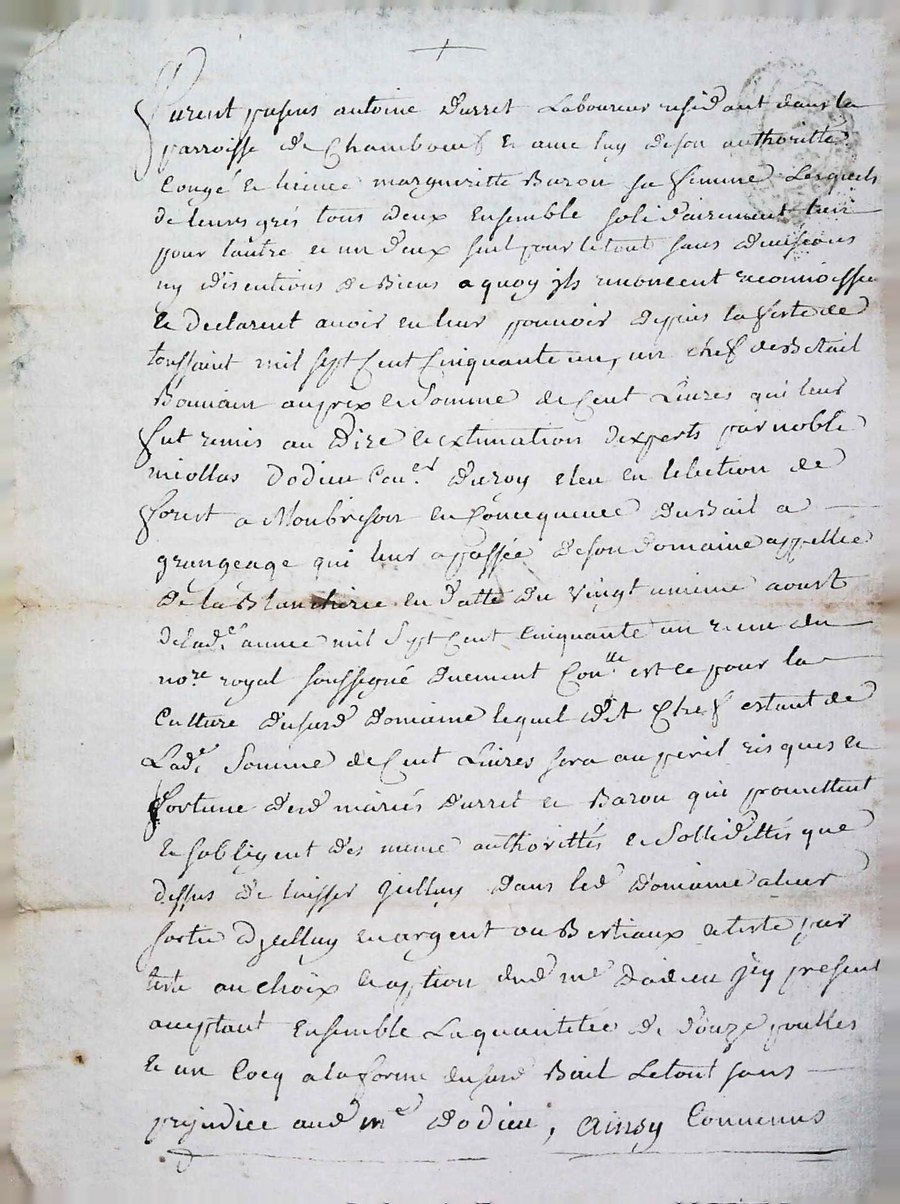 furent presens antoine durret Laboureur residant dans la
parroisse de Chambœuf & avec luy de son authoritté
Congé & licence margueritte Baron sa femme Lesquels
de leurs grés tous deux Ensemble solidairement lun
pour lautre et un deux seul pour letout sans divisions
ny disentions de Biens a quoy jls renoncent reconnoissent
& declarent avoir en leur pouvoir depuis la feste de
toussaint mil sept Cent Cinquante un, un chef de Betail
Bouvain auprix & Somme de Cent Livres qui leur
fut remis au Dire & extimation dexperts par noble
nicollas Dodieu Con.er du roy eleu en lelection de
forest a Monbrison en Concequence du Bail a
grangeage qui leur a passée de son domaine appellée
de la Blancherie en datte du vingt unieme aoust
de lad.e année mil Sept Cent Cinquante un recu du
no.re royal soussigné duement Con.lle est ce pour la
Culture dususd domaine lequel dit Chef estant de
Lad.e Somme de Cent Livres sera au peril risques &
fortune desd mariés durret & Baron qui promettent
& sobligent des meme authorittés & Sollidittés que
dessus de laisser jcelluy dans led domaine a leur
sortie djcelluy en argent ou Bestiaux a teste par
teste au choix & option dud m.e Dodieu jcy present
acceptant Ensemble La quantitée de douze poulles
& un Cocq a la forme dususd Bail Letout sans
prejudice aud m.e dodieu, Ainsy Convenus